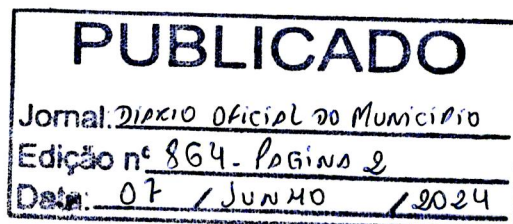 PUBLICADO
Jornal: DIARIO OFICIAL DO MUNICIPIO
Edição nº 864 - PAGINA 2
Data: 07 / JUNHO / 2024